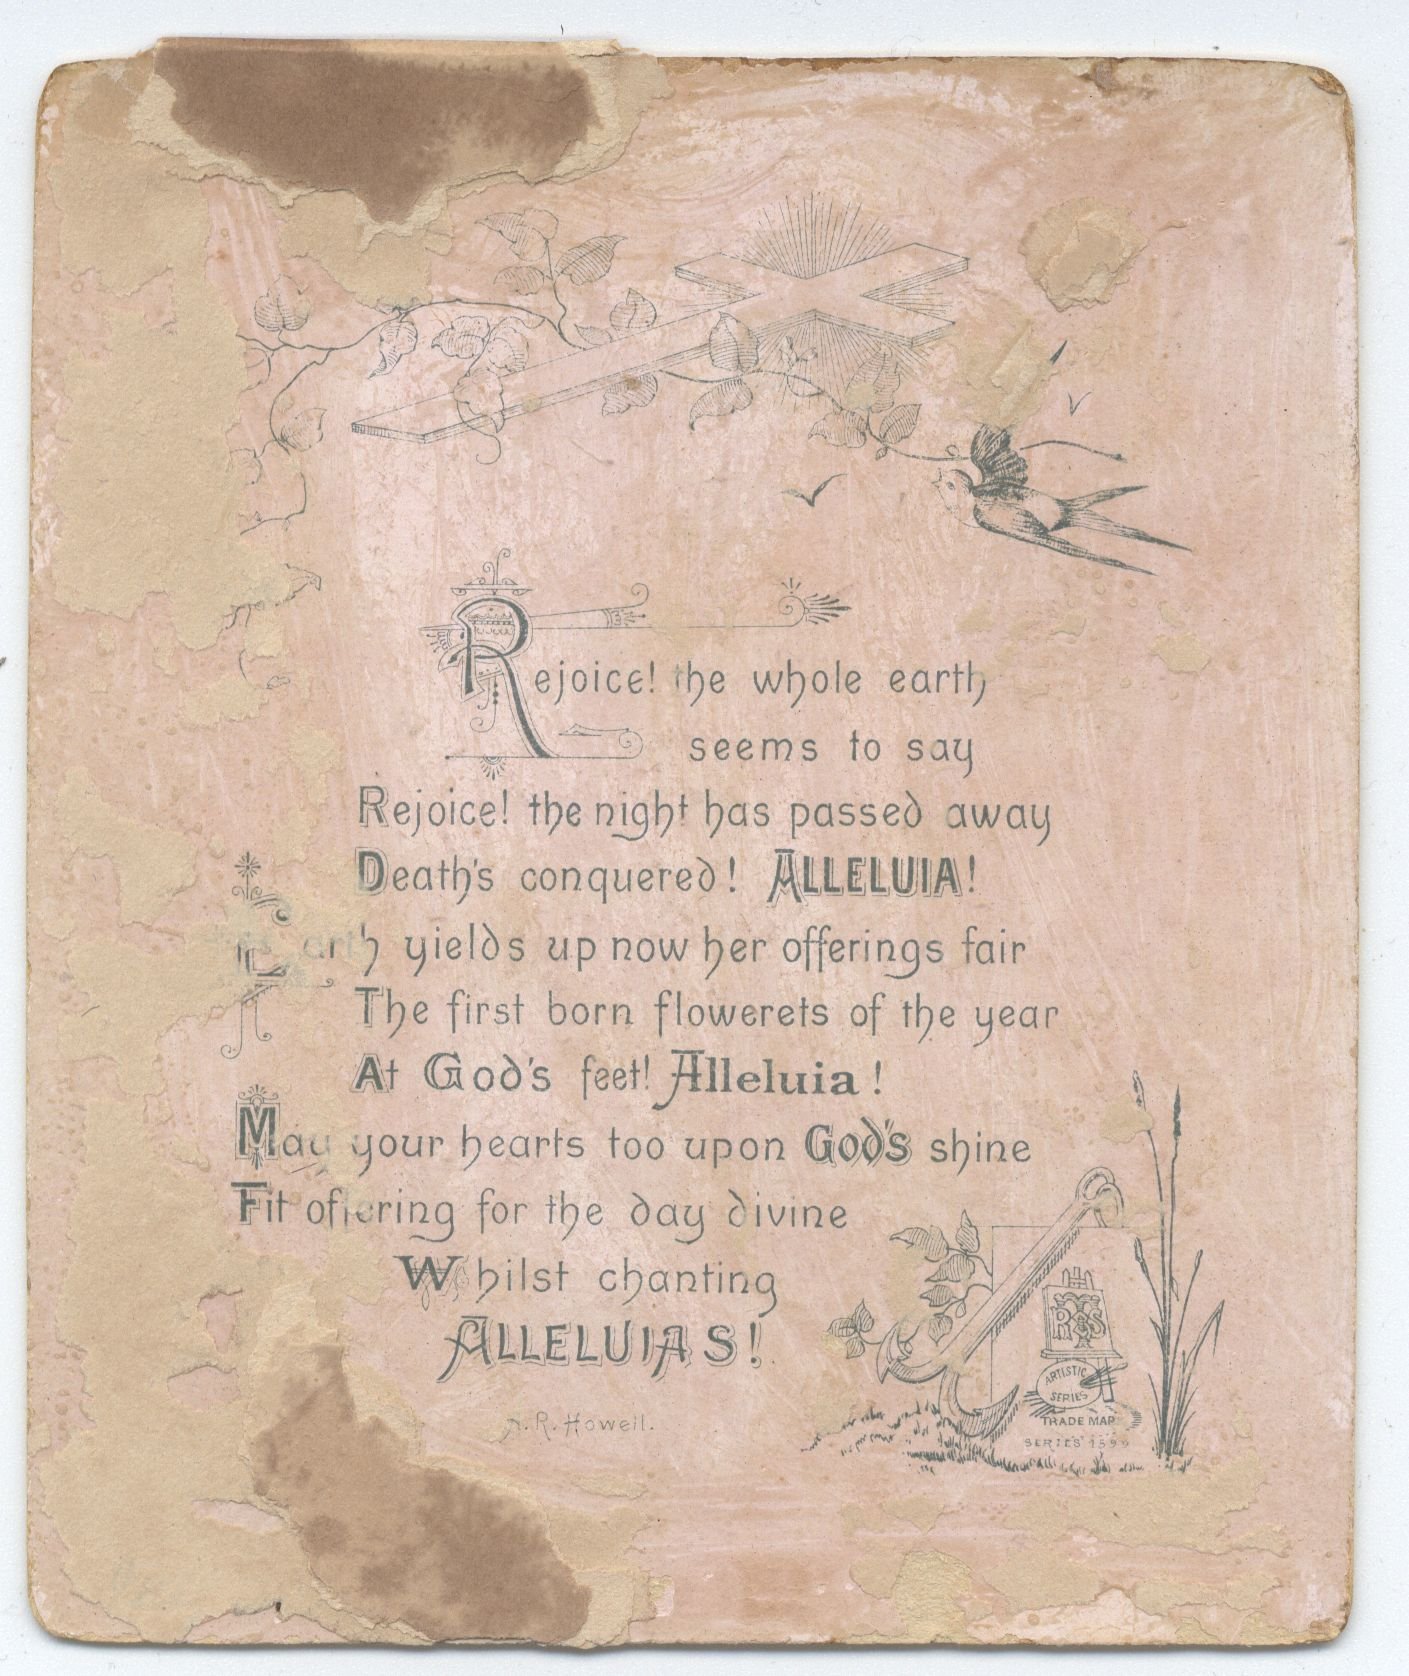 Rejoice! the whole earth
seems to say
Rejoice! the night has passed away
Death's conquered! ALLELUIA!
Earth yields up now her offerings fair
The first born flowerets of the year
At God's feet! Alleluia!
May your hearts too upon God's shine
Fit offering for the day divine
Whilst chanting
ALLELUIAS!
A. R. Howell.
R & S
ARTISTIC
SERIES
TRADE MAR
SERIES 1599